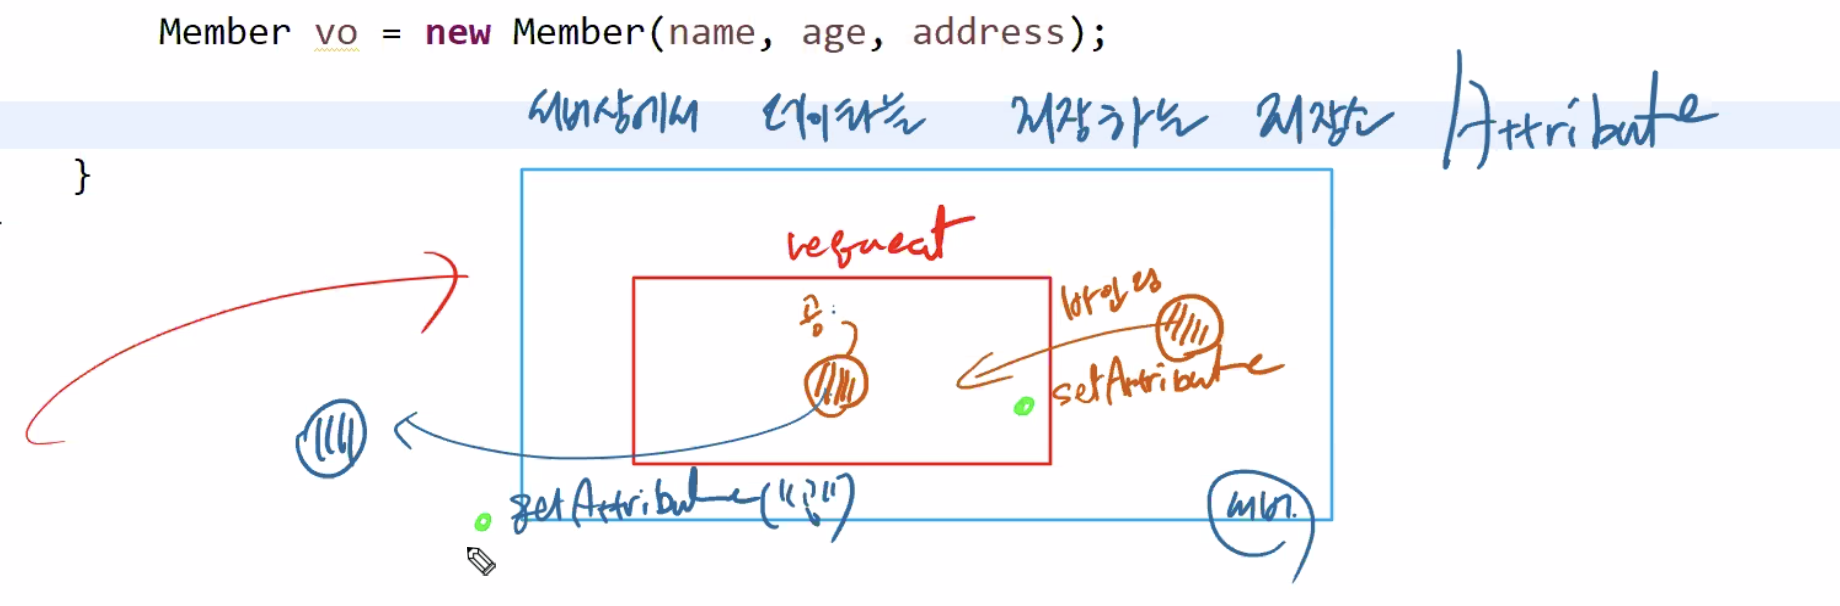 Member vo = new Member(name, age, address);
서버상에서 데이타를 저장하는 저장소 Attribute
}
request
공:
바인딩
setAttribute
getAttribute("공")
서버.